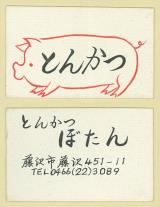 とんかつ
とんかつ
ぼたん
藤沢市藤沢451-11
TEL0466(22)3089